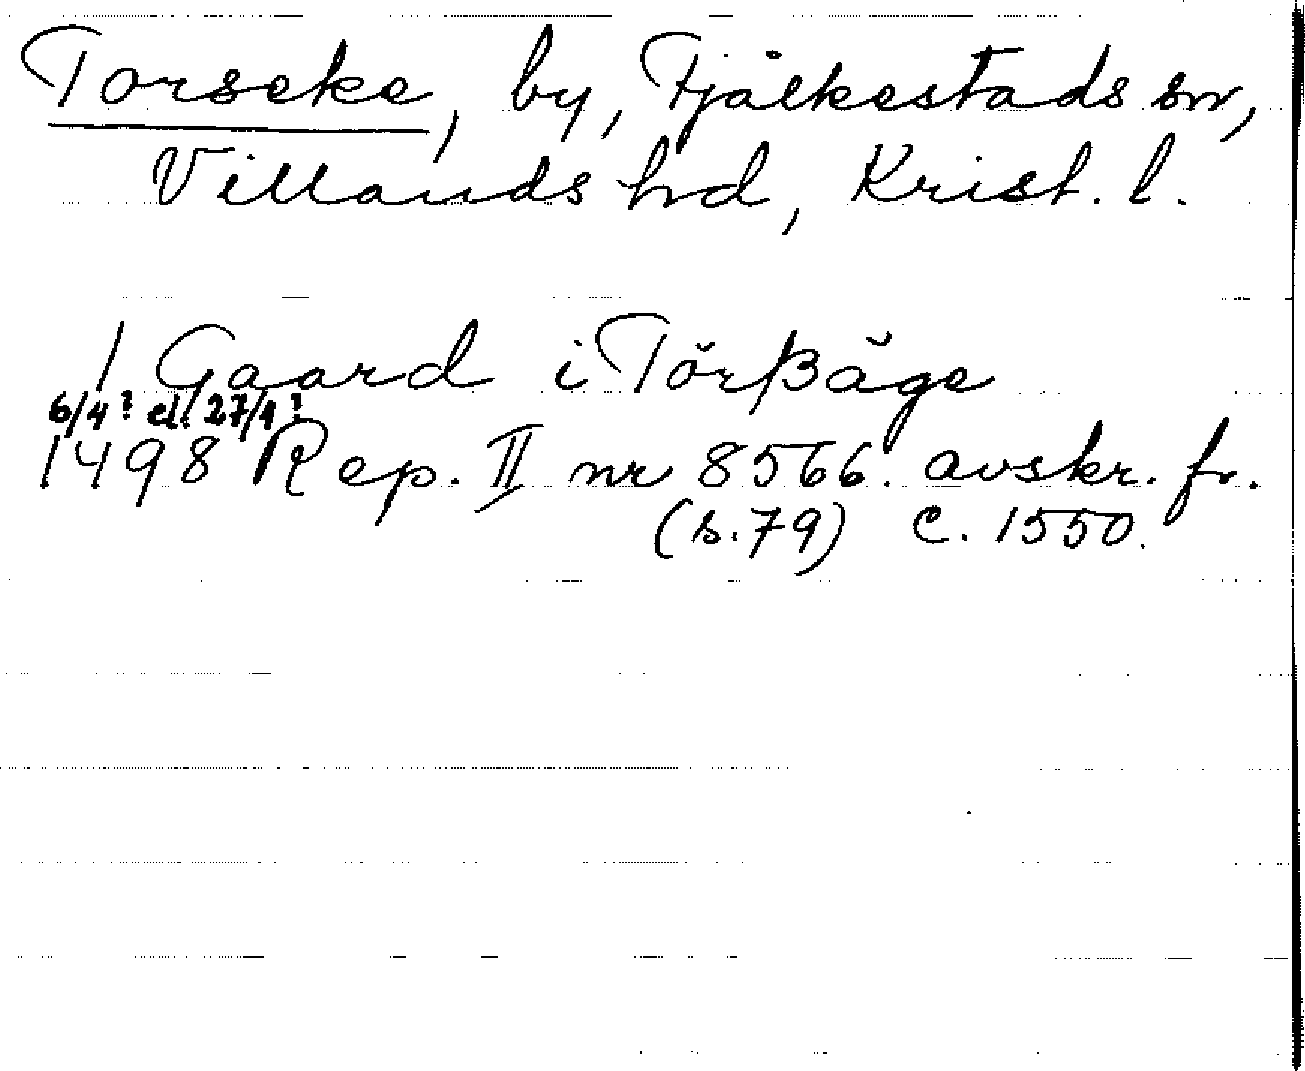 Torseke, by, Fjälkestads sn,
Villands hd, Krist. l.
1 Gaard i Tŏrßăge
6/4? el. 27/4?
1498 Rep. II nr 8566. avskr. fr.
(s. 79) c. 1550.